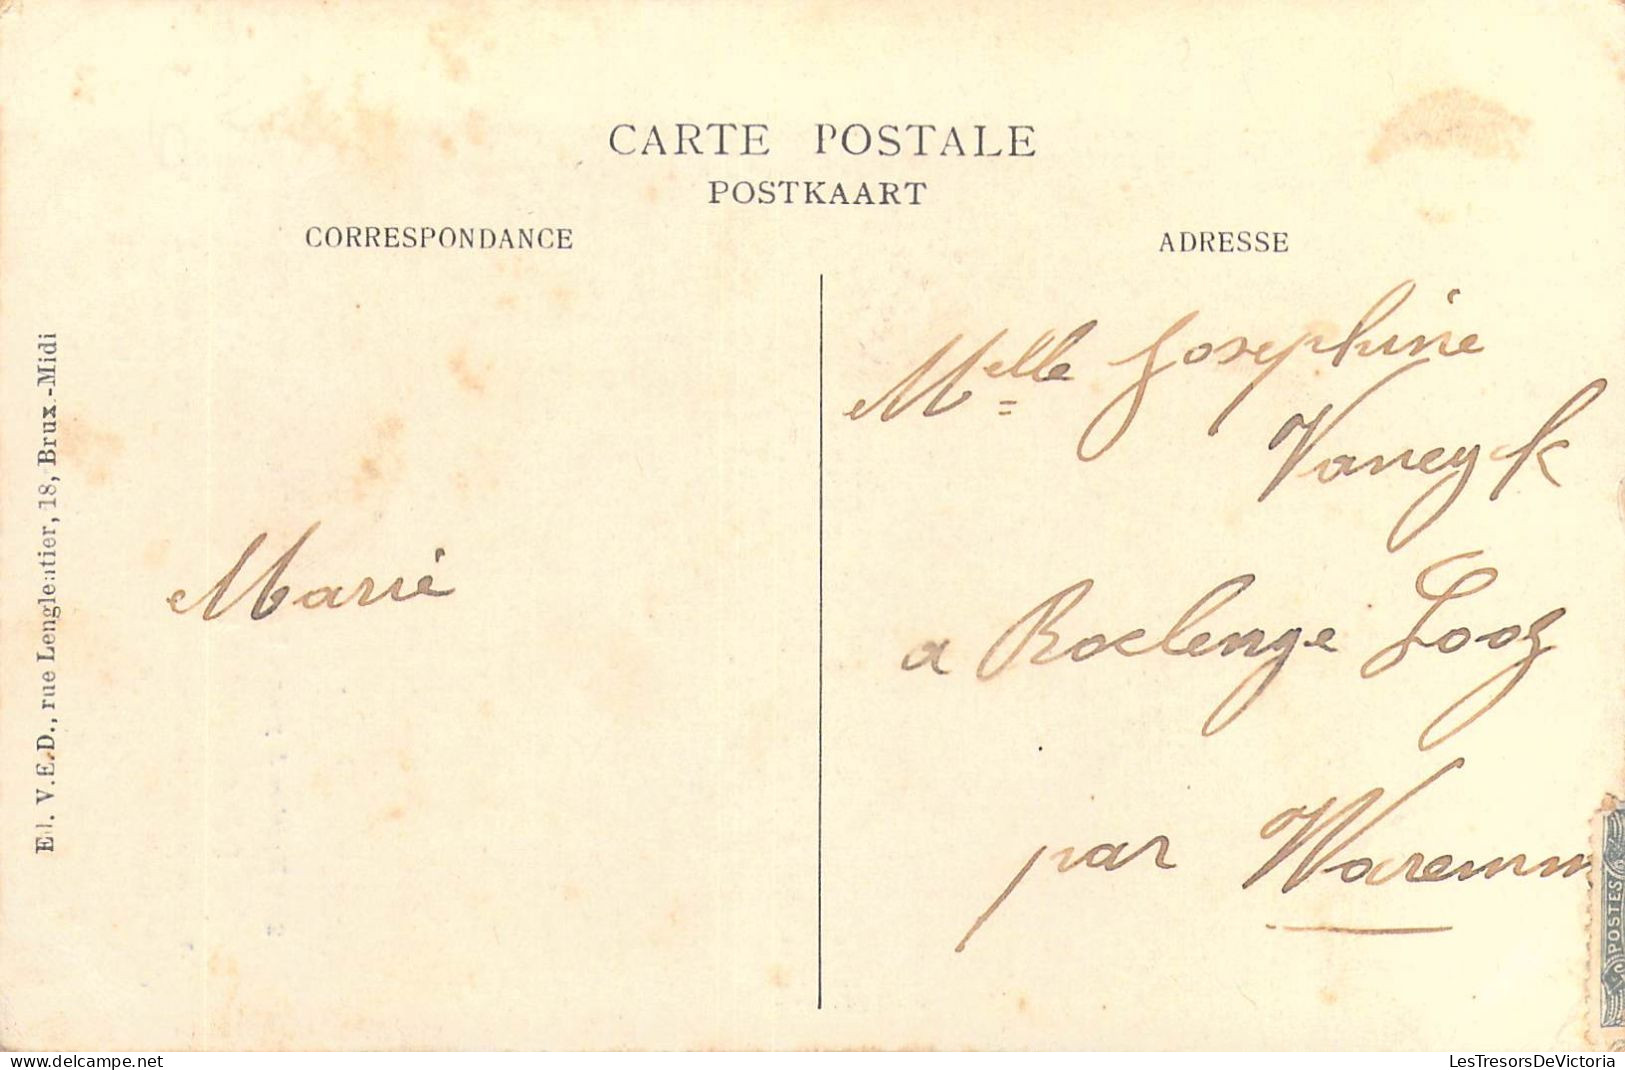 CARTE POSTALE
POSTKAART
CORRESPONDANCE
ADRESSE
Ed. V.E.D., rue Lenglentier, 18, Brux.-Midi
Marie
Melle Josephine
Vaneyck
a Roclenge Looz
par Waremm
POSTES
www.delcampe.net
LesTresorsDeVictoria